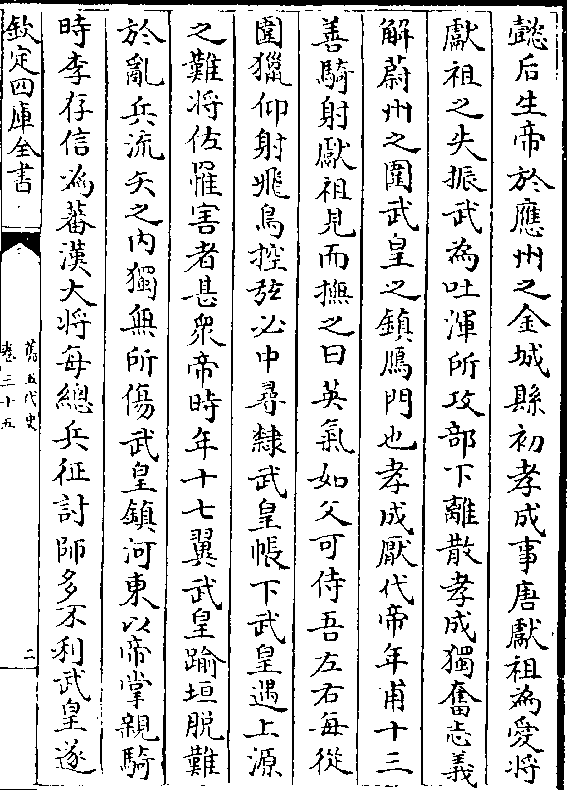 懿后生帝於應州之金城縣初孝成事唐獻祖為愛將
獻祖之失振武為吐渾所攻部下離散孝成獨奮忠義
解蔚州之圍武皇之鎮鴈門也孝成厭代帝年甫十三
善騎射獻祖見而撫之曰英氣如父可侍吾左右每從
圍獵仰射飛鳥控弦必中尋隸武皇帳下武皇遇上源
之難將佐罹害者甚衆帝時年十七翼武皇踰垣脱難
於亂兵流矢之内獨無所傷武皇鎮河東以帝掌親騎
時李存信為蕃漢大將每總兵征討師多不利武皇遂
欽定四庫全書
舊五代史
卷三十五
二